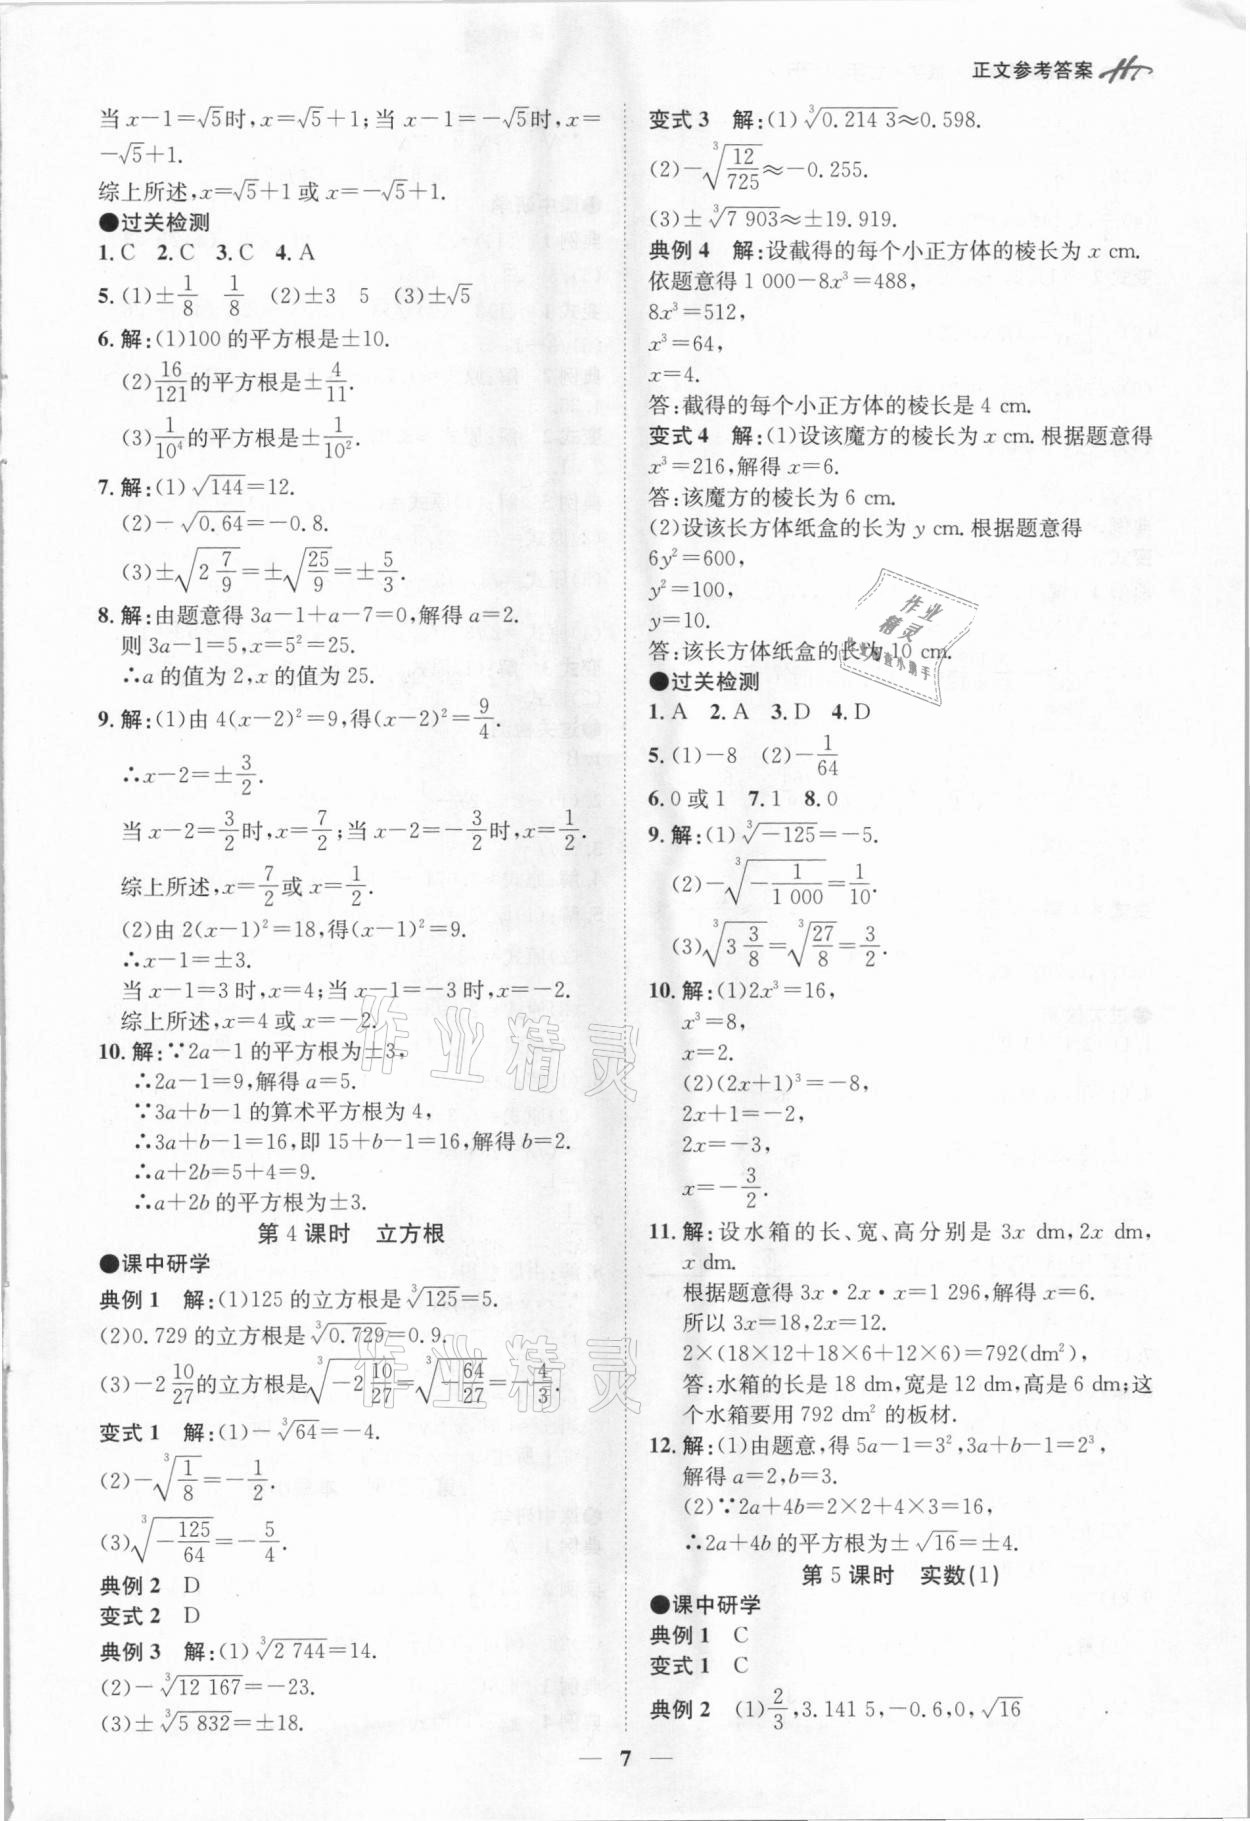 正文参考答案
当 x－1＝√5时，x＝√5＋1；当 x－1＝－√5时，x＝
－√5＋1.
综上所述，x＝√5＋1 或 x＝－√5＋1.
●过关检测
1. C　2. C　3. C　4. A
5. (1)±1/8　1/8　(2)±3　5　(3)±√5
6. 解：(1)100 的平方根是±10.
(2)16/121的平方根是±4/11.
(3)1/10⁴的平方根是±1/10².
7. 解：(1)√144＝12.
(2)－√0.64＝－0.8.
(3)±√(2 7/9)＝±√(25/9)＝±5/3.
8. 解：由题意得 3a－1＋a－7＝0，解得 a＝2.
则 3a－1＝5，x＝5²＝25.
∴a 的值为 2，x 的值为 25.
9. 解：(1)由 4(x－2)²＝9，得(x－2)²＝9/4.
∴x－2＝±3/2.
当 x－2＝3/2时，x＝7/2；当 x－2＝－3/2时，x＝1/2.
综上所述，x＝7/2或 x＝1/2.
(2)由 2(x－1)²＝18，得(x－1)²＝9.
∴x－1＝±3.
当 x－1＝3 时，x＝4；当 x－1＝－3 时，x＝－2.
综上所述，x＝4 或 x＝－2.
10. 解：∵2a－1 的平方根为±3，
∴2a－1＝9，解得 a＝5.
∵3a＋b－1 的算术平方根为 4，
∴3a＋b－1＝16，即 15＋b－1＝16，解得 b＝2.
∴a＋2b＝5＋4＝9.
∴a＋2b 的平方根为±3.
第 4 课时　立方根
●课中研学
典例 1　解：(1)125 的立方根是∛125＝5.
(2)0.729 的立方根是∛0.729＝0.9.
(3)－2 10/27的立方根是∛(－2 10/27)＝∛(－64/27)＝－4/3.
变式 1　解：(1)－∛64＝－4.
(2)－∛(1/8)＝－1/2.
(3)∛(－125/64)＝－5/4.
典例 2　D
变式 2　D
典例 3　解：(1)∛2 744＝14.
(2)－∛12 167＝－23.
(3)±∛5 832＝±18.
变式 3　解：(1)∛0.214 3≈0.598.
(2)－∛(12/725)≈－0.255.
(3)±∛7 903≈±19.919.
典例 4　解：设截得的每个小正方体的棱长为 x cm.
依题意得 1 000－8x³＝488，
8x³＝512，
x³＝64，
x＝4.
答：截得的每个小正方体的棱长是 4 cm.
变式 4　解：(1)设该魔方的棱长为 x cm. 根据题意得
x³＝216，解得 x＝6.
答：该魔方的棱长为 6 cm.
(2)设该长方体纸盒的长为 y cm. 根据题意得
6y²＝600，
y²＝100，
y＝10.
答：该长方体纸盒的长为 10 cm.
●过关检测
1. A　2. A　3. D　4. D
5. (1)－8　(2)－1/64
6. 0 或 1　7. 1　8. 0
9. 解：(1)∛－125＝－5.
(2)－∛(－1/1 000)＝1/10.
(3)∛(3 3/8)＝∛(27/8)＝3/2.
10. 解：(1)2x³＝16，
x³＝8，
x＝2.
(2)(2x＋1)³＝－8，
2x＋1＝－2，
2x＝－3，
x＝－3/2.
11. 解：设水箱的长、宽、高分别是 3x dm，2x dm，
x dm.
根据题意得 3x·2x·x＝1 296，解得 x＝6.
所以 3x＝18，2x＝12.
2×(18×12＋18×6＋12×6)＝792(dm²)，
答：水箱的长是 18 dm，宽是 12 dm，高是 6 dm；这
个水箱要用 792 dm² 的板材.
12. 解：(1)由题意，得 5a－1＝3²，3a＋b－1＝2³，
解得 a＝2，b＝3.
(2)∵2a＋4b＝2×2＋4×3＝16，
∴2a＋4b 的平方根为±√16＝±4.
第 5 课时　实数(1)
●课中研学
典例 1　C
变式 1　C
典例 2　(1)2/3，3.141 5，－0.6，0，√16
— 7 —
作业精灵
作业精灵
作业
精灵